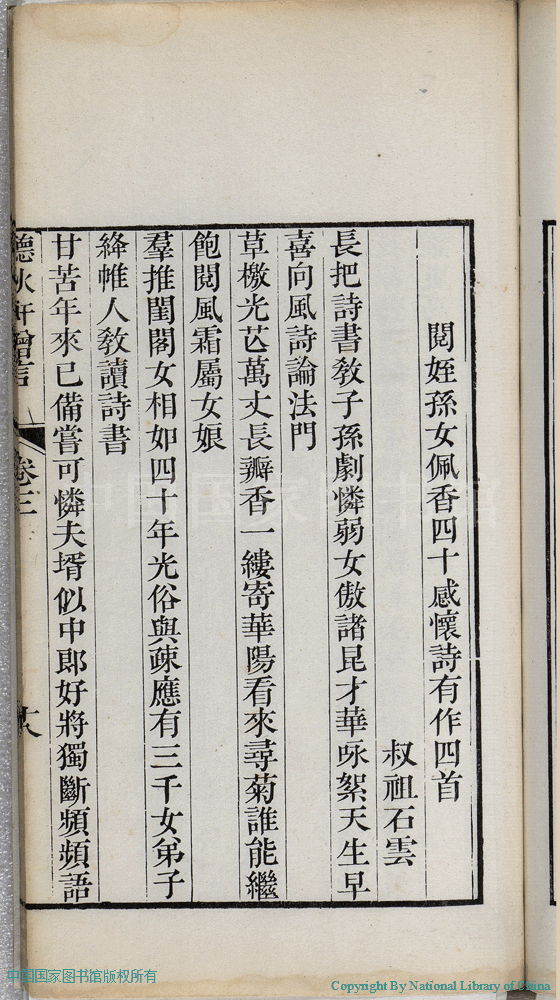 閱姪孫女佩香四十感懷詩有作四首
叔祖石雲
長把詩書敎子孫劇憐弱女傲諸昆才華咏絮天生早
喜向風詩論法門
草檄光芒萬丈長瓣香一縷寄華陽看來尋菊誰能繼
飽閱風霜屬女娘
羣推閨閣女相如四十年光俗與疎應有三千女弟子
絳帷人敎讀詩書
甘苦年來已備嘗可憐夫壻似中郎好將獨斷頻頻語
聽秋軒贈言
卷三
中国国家图书馆版权所有
Copyright By National Library of China